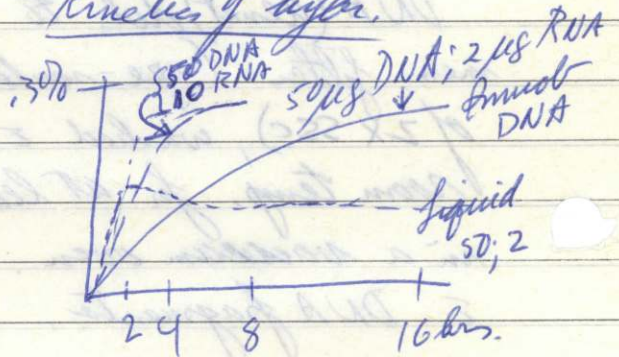 Kinetics of hybr.
.3%
{50 DNA
10 RNA
50µg DNA; 2 µg RNA
DNA
Liquid
50; 2
2 4 8 16 hrs.